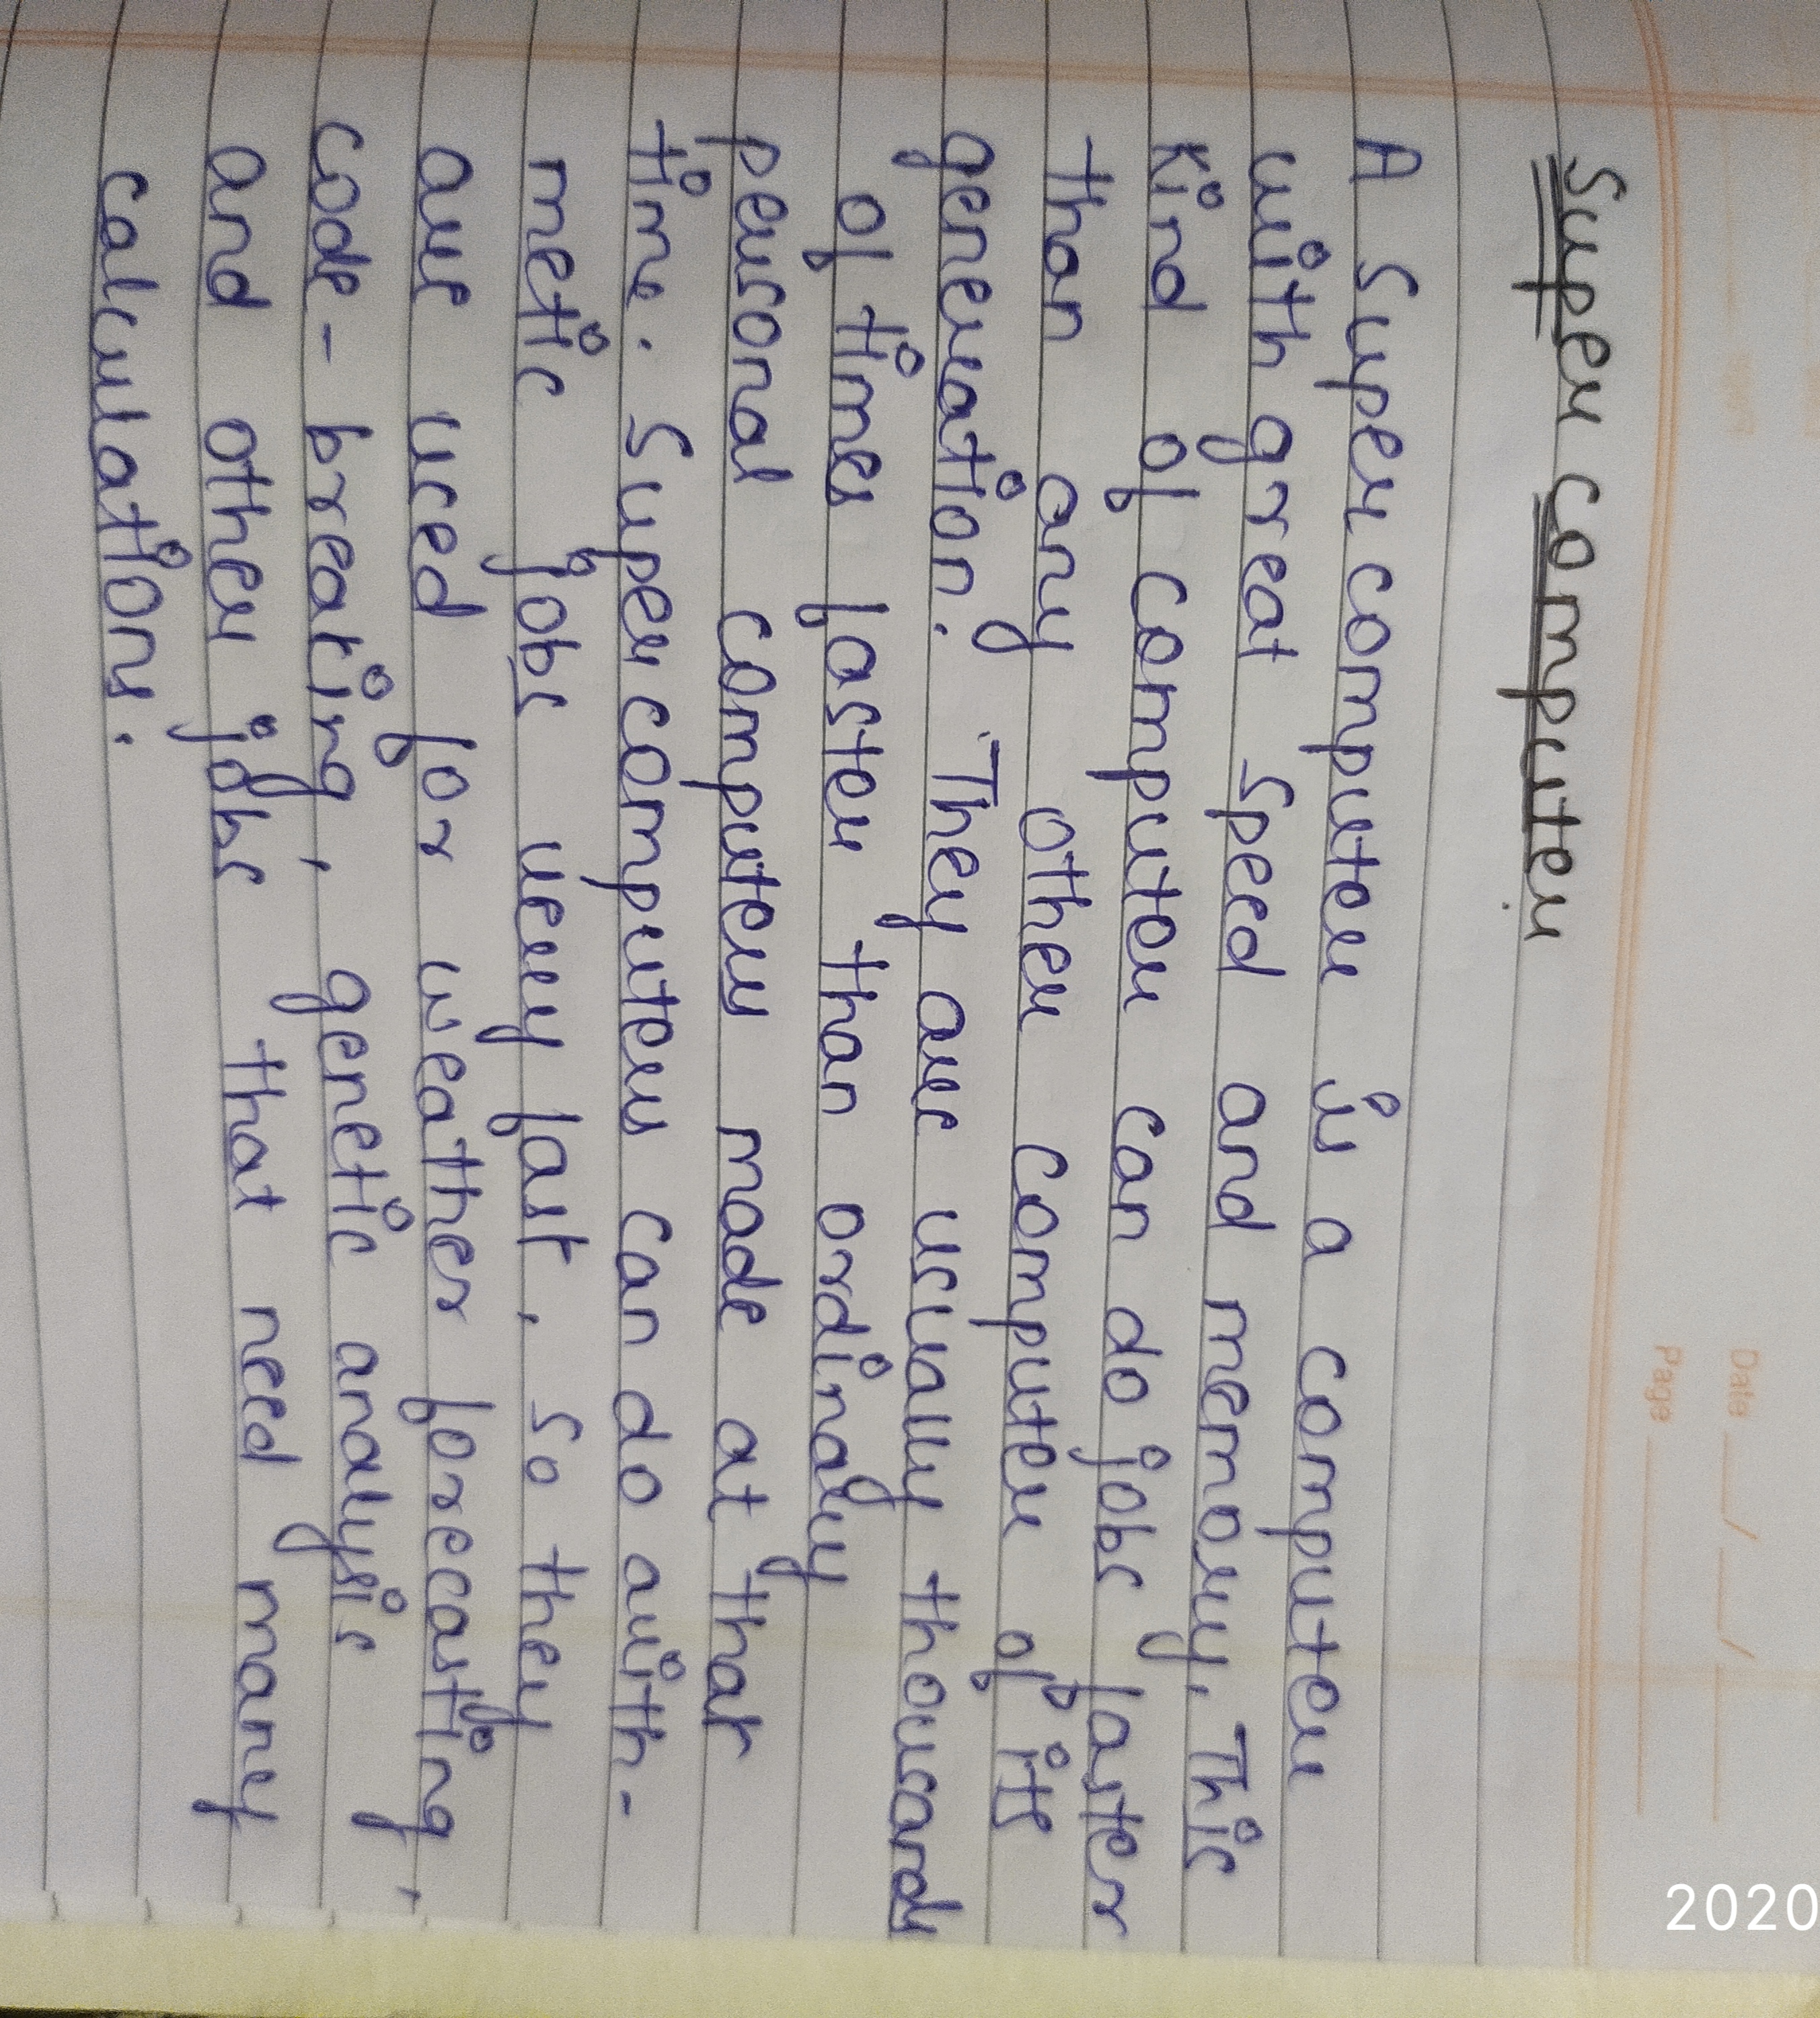 Super computer
Date
Page
A Super computer is a computer
with great speed and memory. This
kind of computer can do jobs faster
than any other computer of its
generation. They are usually thousands
of times faster than ordinary
personal computers made at that
time. Super computers can do arith-
metic jobs very fast, so they
are used for weather forecasting,
code-breaking, genetic analysis
and other jobs that need many
calculations.
2020